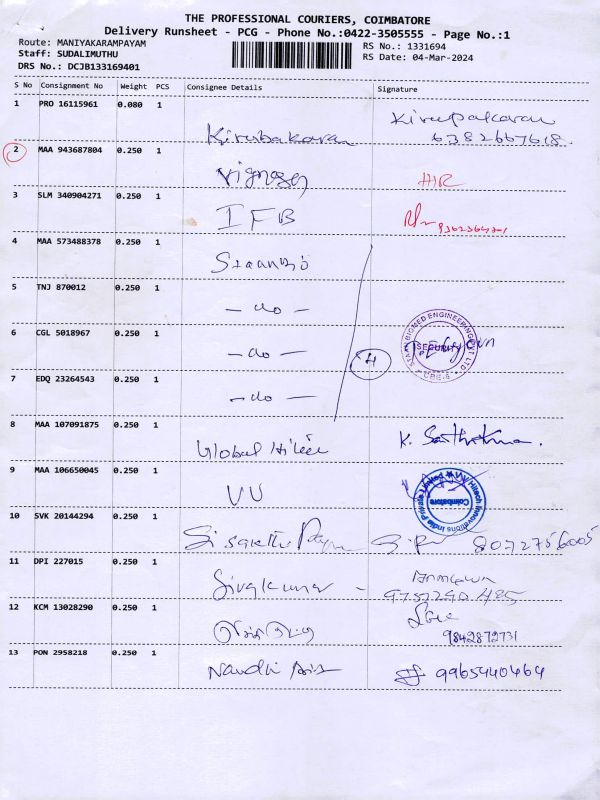 THE PROFESSIONAL COURIERS, COIMBATORE
Delivery Runsheet - PCG - Phone No.:0422-3505555 - Page No.:1
Route: MANIYAKARAMPAYAM
Staff: SUDALIMUTHU
DRS No.: DCJB133169401
RS No.: 1331694
RS Date: 04-Mar-2024
S No Consignment No Weight PCS Consignee Details Signature
1 PRO 16115961 0.080 1 Kirubakaran Kirupakaran
6382667618.
2 MAA 943687804 0.250 1 Vignesh
3 SLM 340904271 0.250 1 IFB
4 MAA 573488378 0.250 1
5 TNJ 870012 0.250 1 - do -
6 CGL 5018967 0.250 1 - do - 4 SECURITY
7 EDQ 23264543 0.250 1 - do -
8 MAA 107091875 0.250 1 Global
9 MAA 106650045 0.250 1 VV
Hitech Innovations India Private Limited
Coimbatore
10 SVK 20144294 0.250 1 8072756005
11 DPI 227015 0.250 1 Sivakumar -
9757290485
12 KCM 13028290 0.250 1
9842872731
13 PON 2958218 0.250 1 Nandhi 9965440464